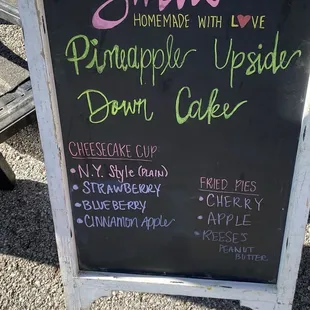 HOMEMADE WITH LOVE
Pineapple Upside
Down Cake
CHEESECAKE CUP
• N.Y. Style (PLAIN)
• STRAWBERRY
• BLUEBERRY
• CINNAMON Apple
FRIED PIES
• CHERRY
• APPLE
• REESE'S
PEANUT
BUTTER